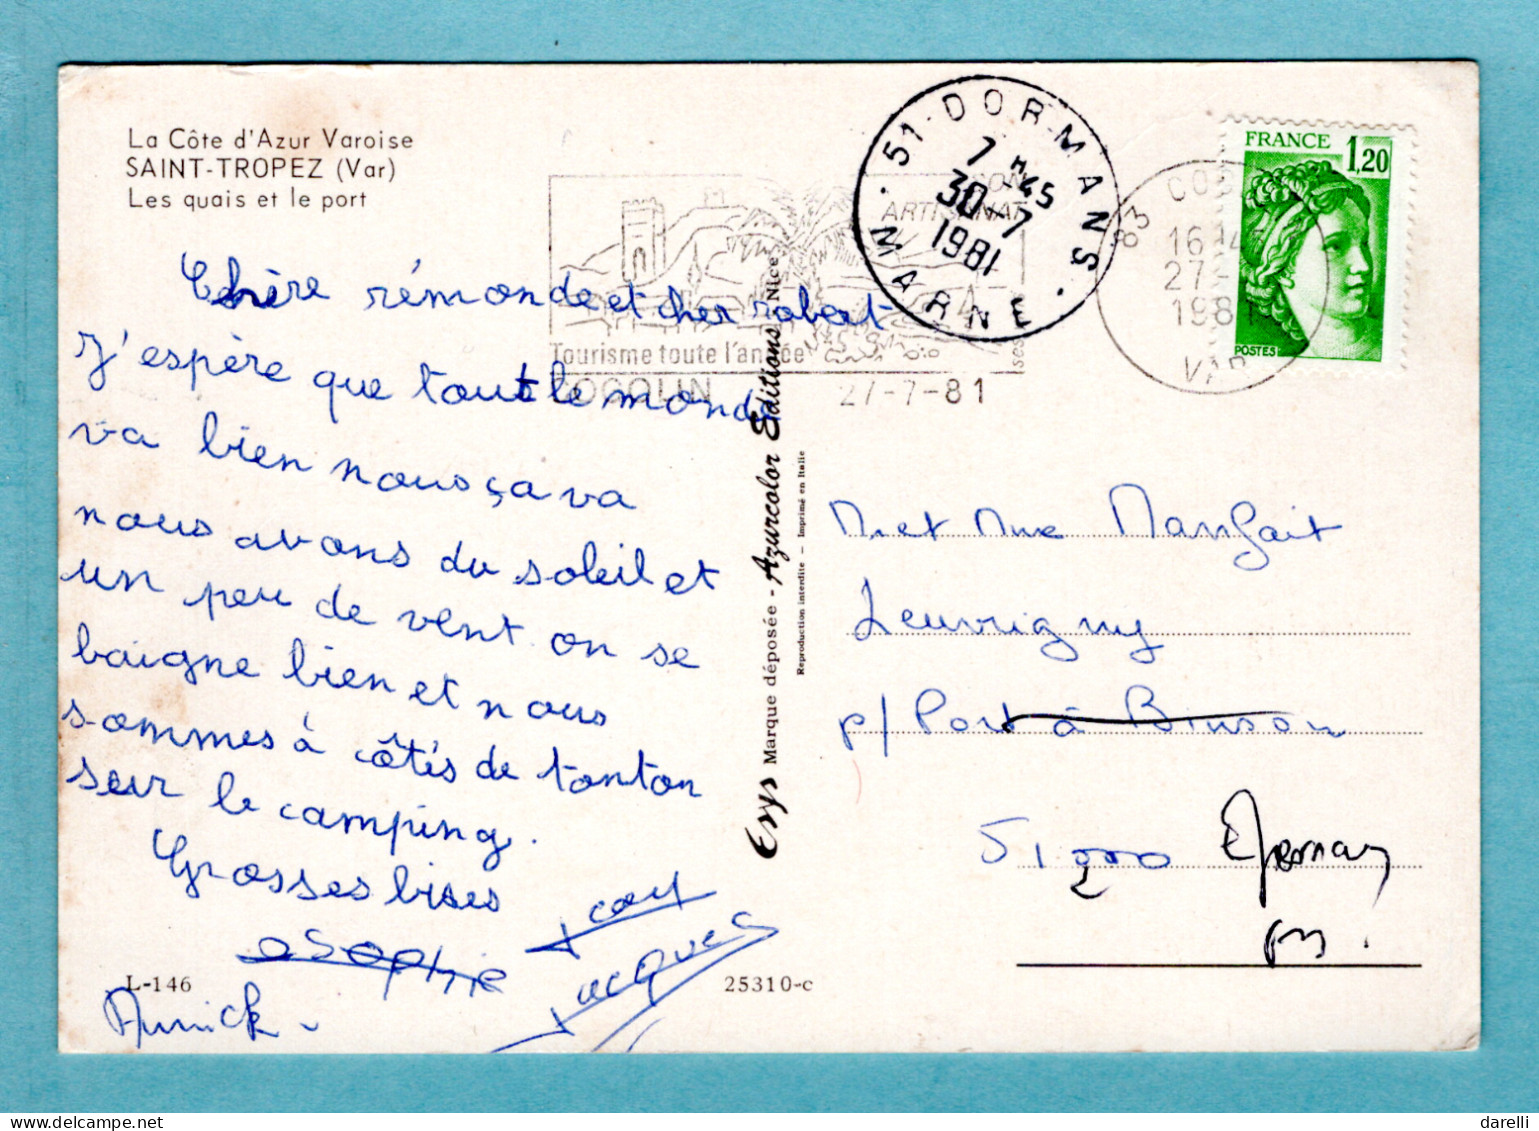 La Côte d'Azur Varoise
SAINT-TROPEZ (Var)
Les quais et le port
Chère rémonde et cher robert
J'espère que tout le monde
va bien nous ça va
nous avons du soleil et
un peu de vent on se
baigne bien et nous
sommes à côtés de tonton
sur le camping.
Grosses bises
Sophie
Jacques
Annick
L-146
25310-c
Erys Marque déposée - Azurcolor Editions Nice
Reproduction interdite — Imprimé en Italie
SON
ARTISANAT
ses
Tourisme toute l'année
COGOLIN 27-7-81
51-DORMANS
7 H 45
30-7
1981
MARNE
83 COG
16 H
27-
1981
VAR
FRANCE
1,20
POSTES
Mr et Mme Manfait
Leuvrigny
p/ Port à Binson
51200 Epernay